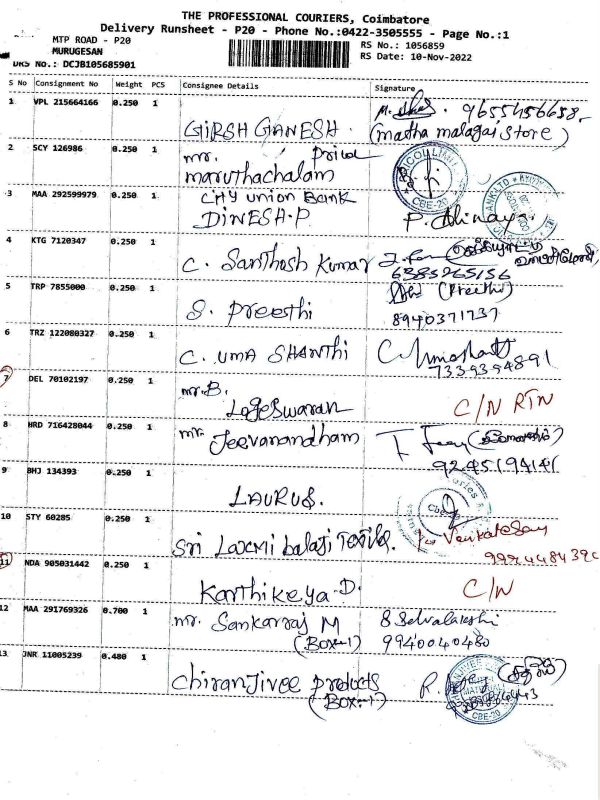 THE PROFESSIONAL COURIERS, Coimbatore
Delivery Runsheet - P20 - Phone No.:0422-3505555 - Page No.:1
MTP ROAD - P20
MURUGESAN
DRS No.: DCJB105685901
RS No.: 1056859
RS Date: 10-Nov-2022
S No Consignment No Weight PCS Consignee Details Signature
1 VPL 215664166 0.250 1
GIRSH GANESH. 9655456658
(matha malagai store)
2 SCY 126986 0.250 1
mr.
maruthachalam
CBE-20
3 MAA 292599979 0.250 1 City union Bank
DINESH.P
4 KTG 7120347 0.250 1
C. Santhosh Kumar
6385265156
5 TRP 7855000 0.250 1
S. Preethi (Preethi)
8940371737
6 TRZ 122080327 0.250 1
C. UMA SHANTHI
7339394891
7 DEL 70102197 0.250 1
mr.B.
Logeswaran C/N RTN
8 HRD 716428044 0.250 1
mr. Jeevanandham
9245194141
9 BHJ 134393 0.250 1
LAURUS.
10 STY 60285 0.250 1
Sri Laxmi balaji Textiles. Venkatesan
11 NDA 905031442 0.250 1
Karthikeya.D. C/N
12 MAA 291769326 0.700 1
mr. Sankarraj M S Selvalakshi
(Box-1) 9940040480
13 JNR 11005239 0.480 1
Chiranjivee products
(Box-1)
CBE-20